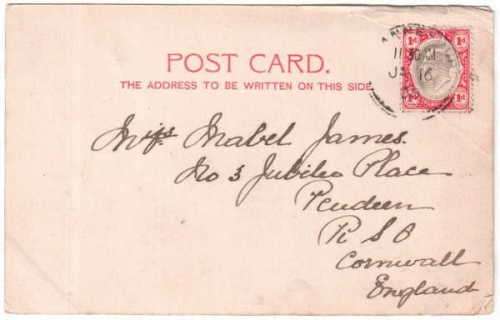 POST CARD.
THE ADDRESS TO BE WRITTEN ON THIS SIDE
11 30 AM
JA 16
1d 1d
1d 1d
Miss Mabel James.
No 3 Jubilee Place
Pendeen
R S O
Cornwall
England